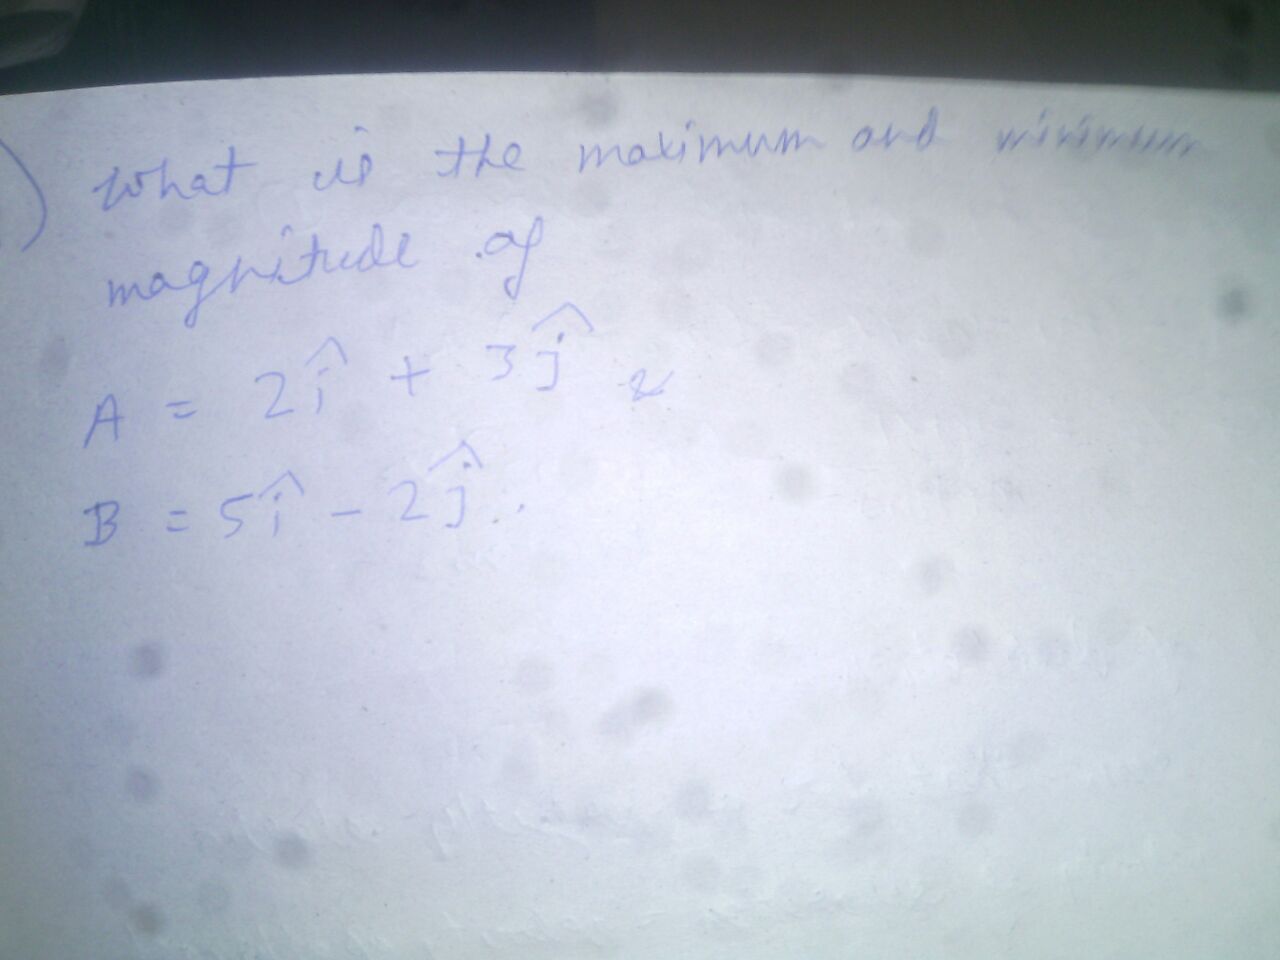 ) What is the maximum and minimum
magnitude of
A = 2î + 3ĵ &
B = 5î - 2ĵ.